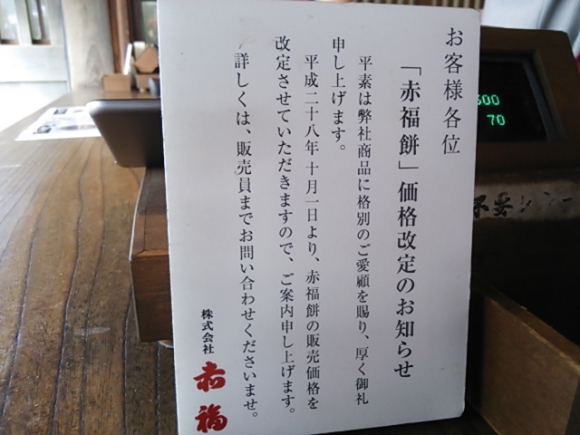 お客様各位
「赤福餅」価格改定のお知らせ
平素は弊社商品に格別のご愛顧を賜り、厚く御礼
申し上げます。
平成二十八年十月一日より、赤福餅の販売価格を
改定させていただきますので、ご案内申し上げます。
詳しくは、販売員までお問い合わせくださいませ。
株式会社 赤福
500
70
不要